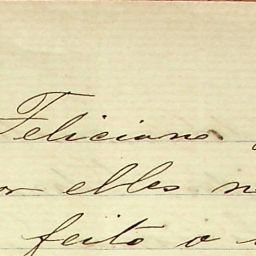 Feliciano
or elles n
feito o